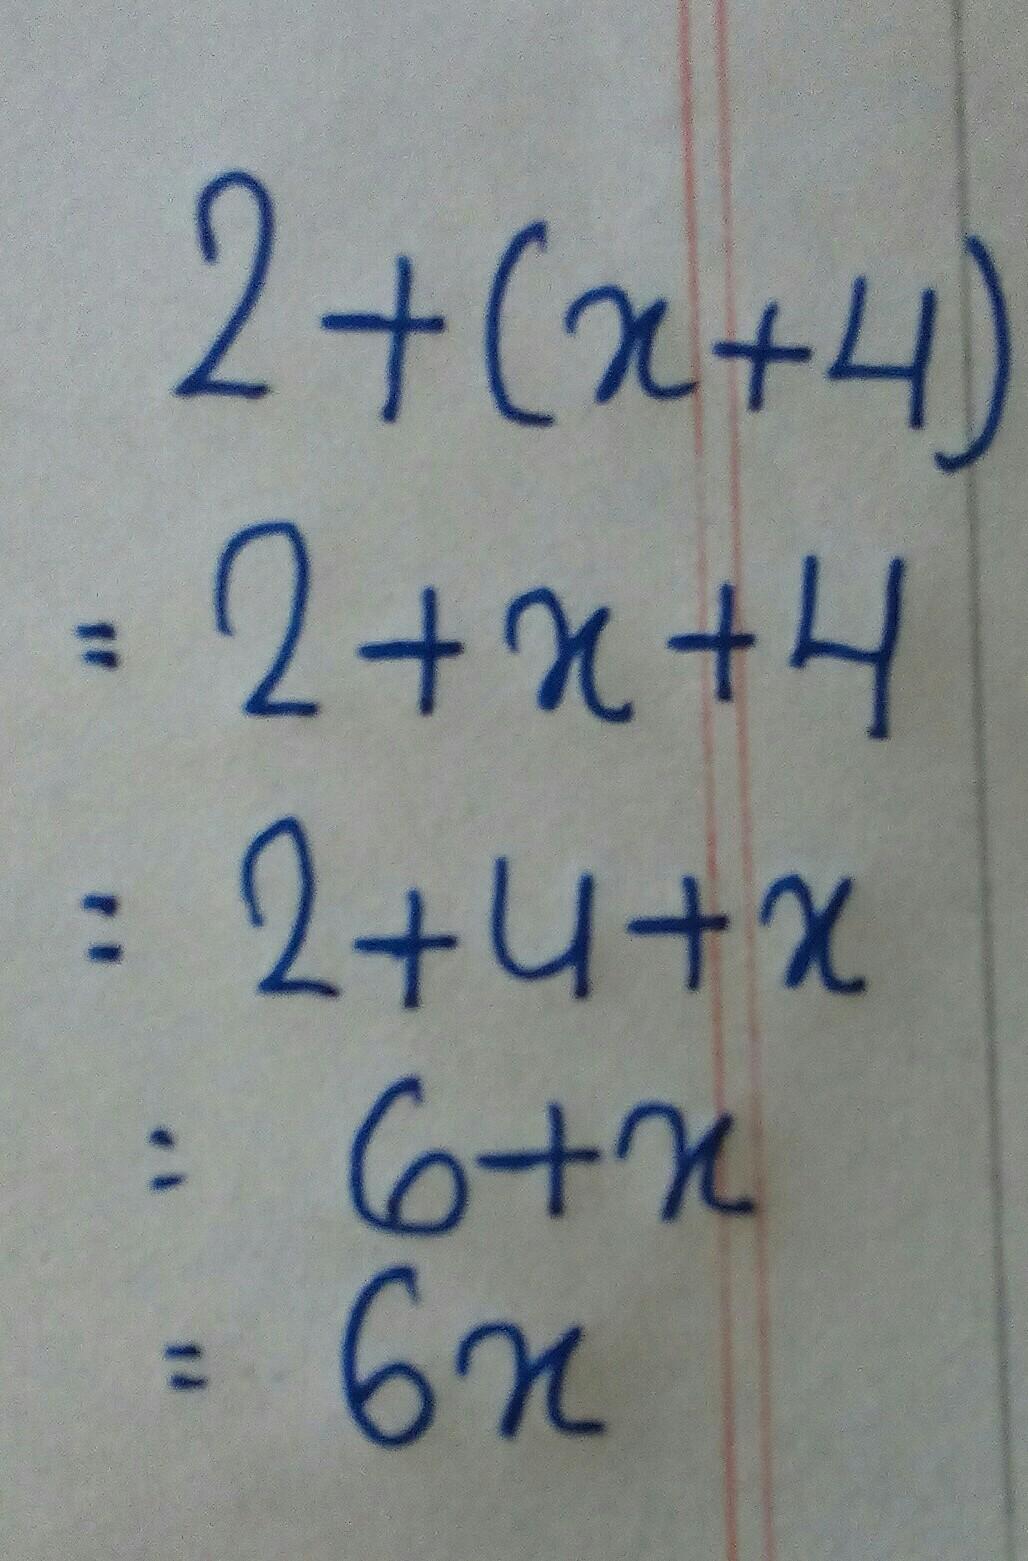 2+(x+4)
= 2+x+4
= 2+4+x
= 6+x
= 6x